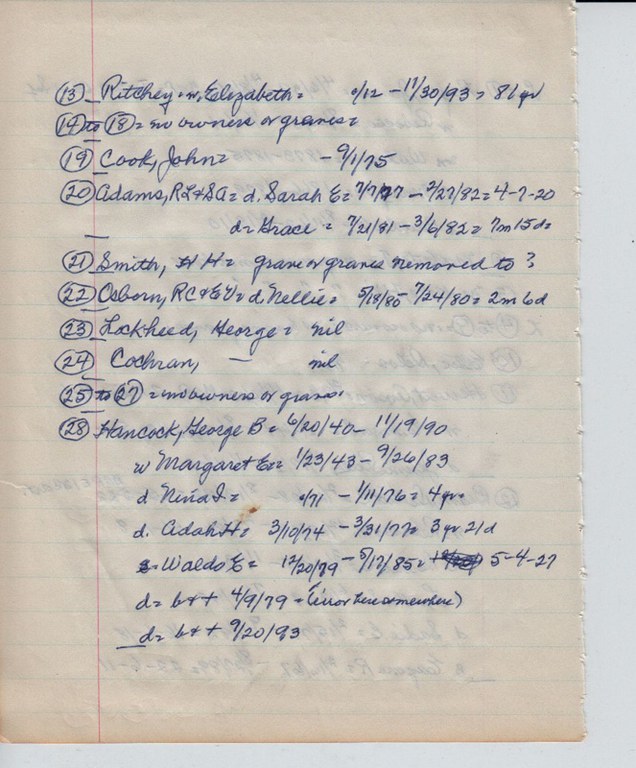 (13) Ritchey = w. Elizabeth = 0/12 - 11/30/93 = 81 yr
(14) to (18) = no owners or graves =
(19) Cook, John = - 9/1/75
(20) Adams, RL & SA = d. Sarah E = 7/7/77 - 2/27/82 = 4-7-20
d = Grace = 7/21/81 - 3/6/82 = 7m 15d =
(21) Smith, H H = grave or graves removed to ?
(22) Osborn, RC & EV = d. Nellie = 5/18/80 7/24/80 = 2m 6d
(23) Lockheed, George = nil
(24) Cochran, — nil
(25) to (27) = no owners or graves.
(28) Hancock, George B = 6/20/40 - 11/19/90
w Margaret E = 1/23/43 - 9/26/83
d Nina I = 0/71 - 1/11/76 = 4 yr.
d. Adah H = 3/10/74 - 3/31/77 = 3 yr 21d
s. Waldo E = 12/20/79 - 5/17/85 = 5-4-27
d = b & + 4/9/79 = (error here somewhere)
d = b & + 9/20/83